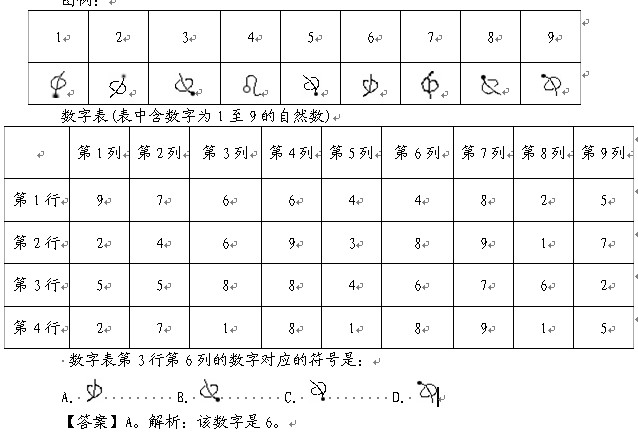 图例：
1 2 3 4 5 6 7 8 9
数字表(表中含数字为1至9的自然数)
第1列 第2列 第3列 第4列 第5列 第6列 第7列 第8列 第9列
第1行 9 7 6 6 4 4 8 2 5
第2行 2 4 6 9 3 8 9 1 7
第3行 5 5 8 8 4 6 7 6 2
第4行 2 7 1 8 1 8 9 1 5
数字表第3行第6列的数字对应的符号是：
A. B. C. D.
【答案】A。解析：该数字是6。